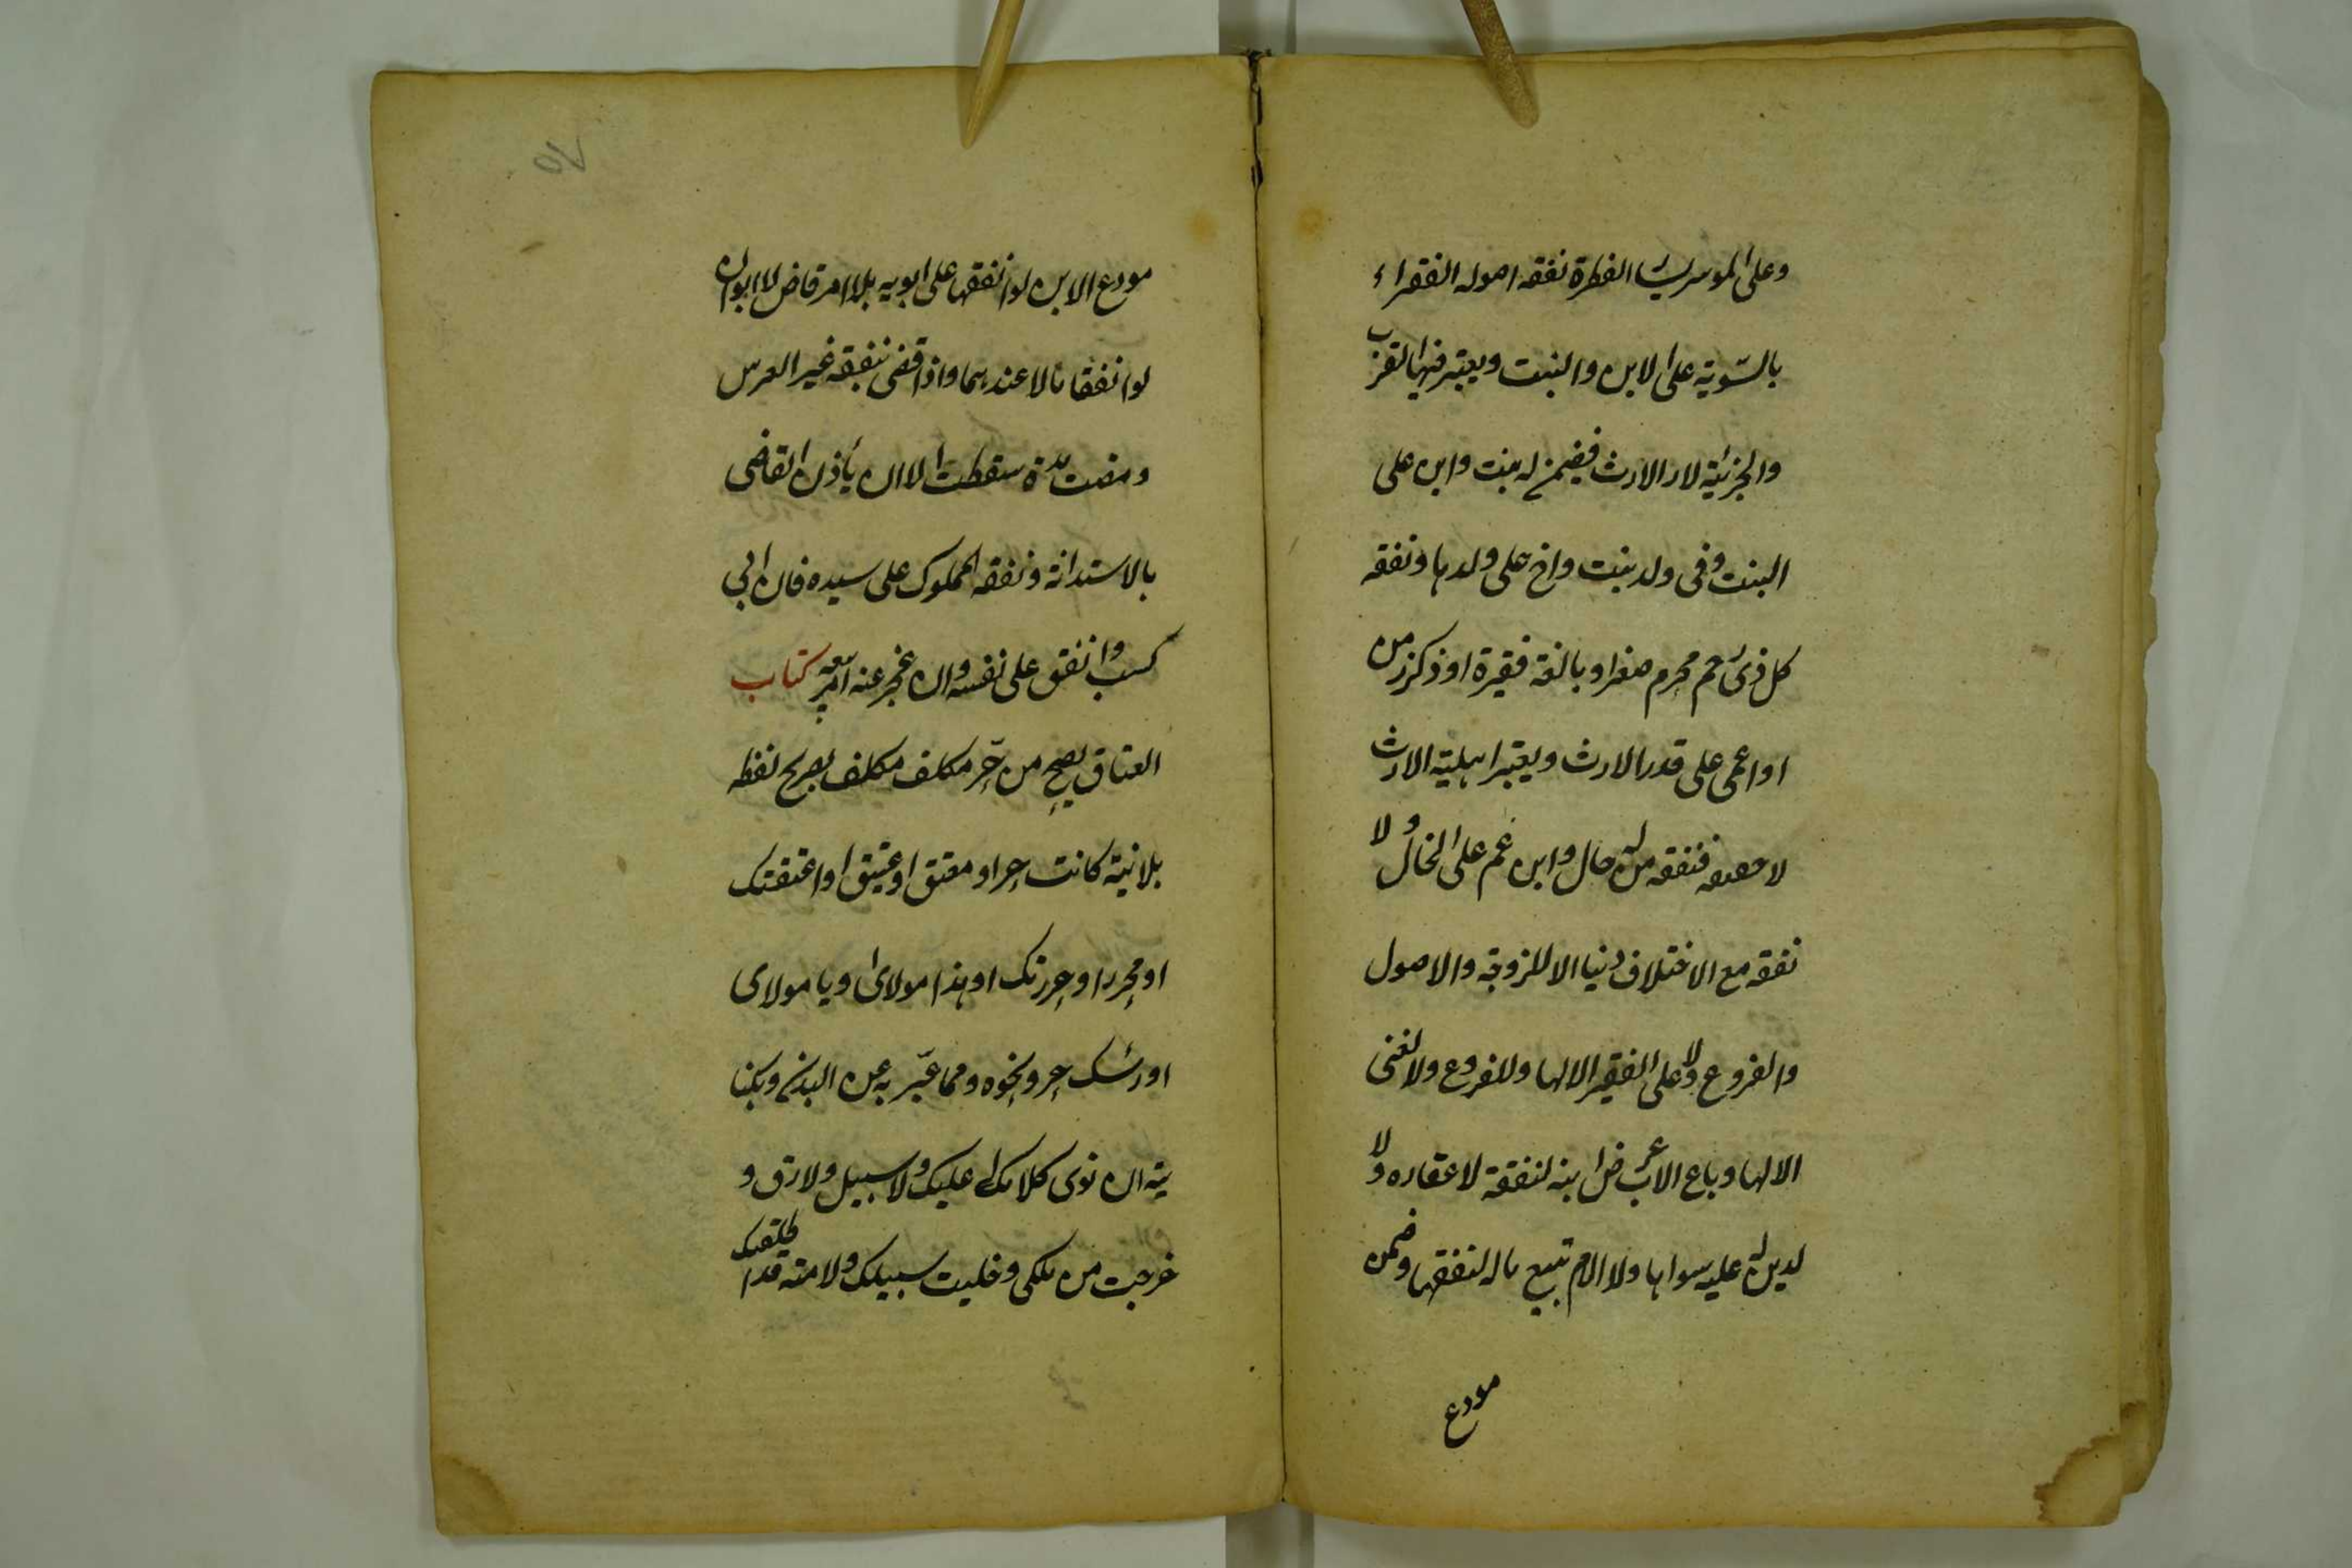 وعلى الموسر يسار الفطرة نفقه اصوله الفقراء
بالسّوية على الابن والبنت ويعتبر فيها القرب
والجزئية لا الارث ففيمن له بنت وابن على
البنت وفى ولد بنت واخ على ولدها ونفقه
كل ذى رحم محرم صغير او بالغة فقيرة او ذكر زمن
او اعمى على قدر الارث ويعتبر اهلية الارث
لا حقيقه فنفقه من له خال وابن عم على الخال ولا
نفقه مع الاختلاف دينا الا للزوجة والاصول
والفروع ولا على الفقير الا لها وللفروع ولا لغنى
الا لها وباع الاب عرض ابنه لنفقة لا عقاره ولا
لدين له عليه سواها ولا الام تبيع ماله لنفقتها وضمن
مودع
٧٥
مودع الابن لو انفقها على ابويه بلا امر قاض لا ابوان
لو انفقا مالا عندهما واذا قضى بنفقه غير العرس
ومضت مدة سقطت الا ان يأذن القاضى
بالاستدانة ونفقه المملوك على سيده فان ابى
كسب وانفق على نفسه وان عجز عنه امر ببيعه كتاب
العتاق يصح من حّر مكلف مكلف بصريح لفظه
بلا نية كانت حر او معتق او عتيق او اعتقتك
او محرر او حررتك او هذا مولاى او يا مولاى
او رئسك حر ونحوه ومما عّبر به عن البدن وبكنا
ية ان نوى كلا ملك عليك ولا سبيل ولا رق و
خرجت من ملكى وخليت سبيلك ولامته قد اطلقتك